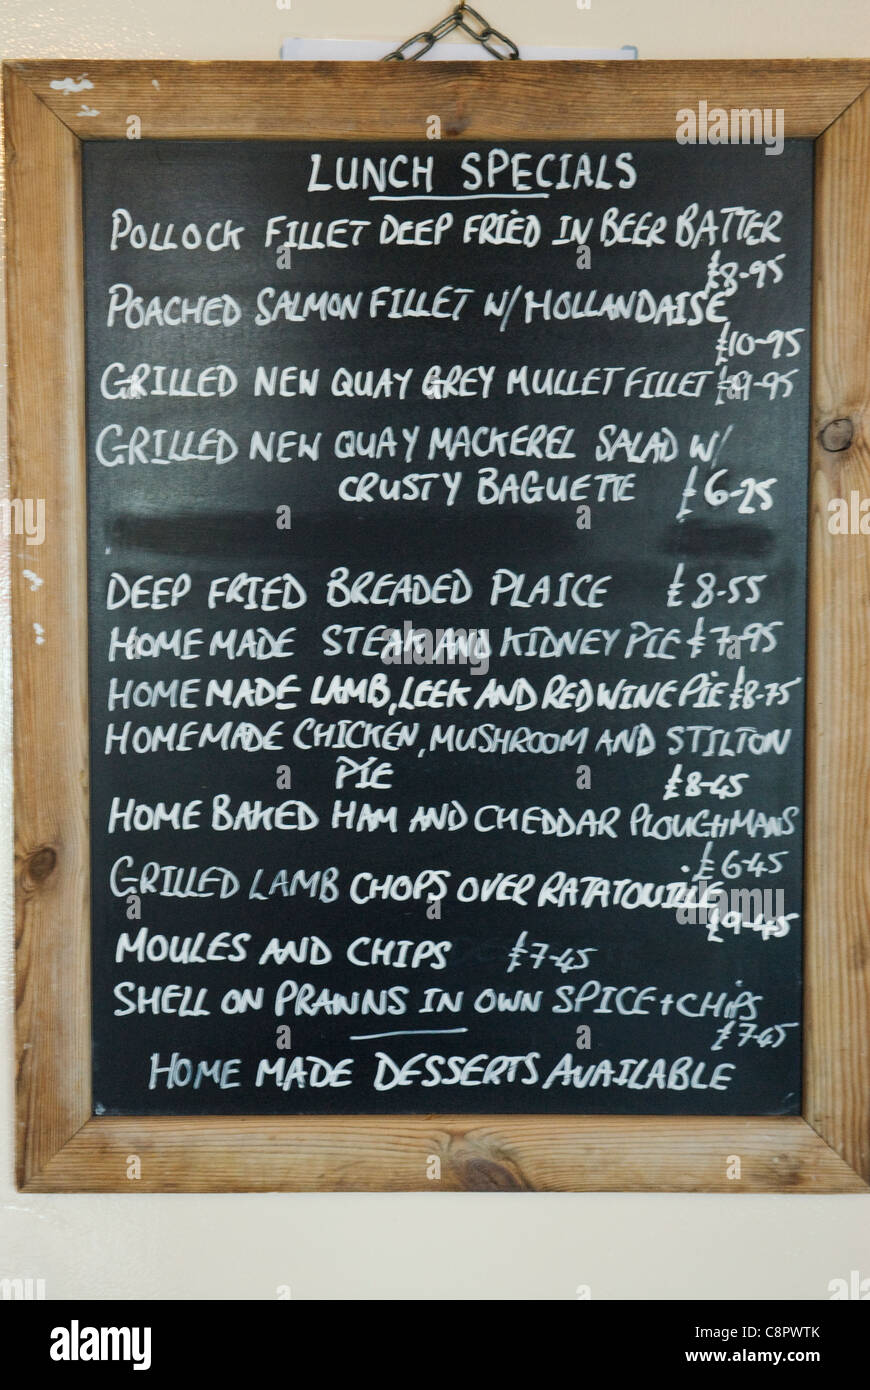 LUNCH SPECIALS
POLLOCK FILLET DEEP FRIED IN BEER BATTER
£8-95
POACHED SALMON FILLET W/ HOLLANDAISE
£10-95
GRILLED NEW QUAY GREY MULLET FILLET £9-95
GRILLED NEW QUAY MACKEREL SALAD W/
CRUSTY BAGUETTE £6-25
DEEP FRIED BREADED PLAICE £8-55
HOME MADE STEAK AND KIDNEY PIE £7-95
HOME MADE LAMB, LEEK AND RED WINE PIE £8-75
HOMEMADE CHICKEN, MUSHROOM AND STILTON
PIE £8-45
HOME BAKED HAM AND CHEDDAR PLOUGHMANS
£6-45
GRILLED LAMB CHOPS OVER RATATOUILLE
£9-45
MOULES AND CHIPS £7-45
SHELL ON PRAWNS IN OWN SPICE + CHIPS
£7-45
HOME MADE DESSERTS AVAILABLE
alamy
Image ID: C8PWTK
www.alamy.com